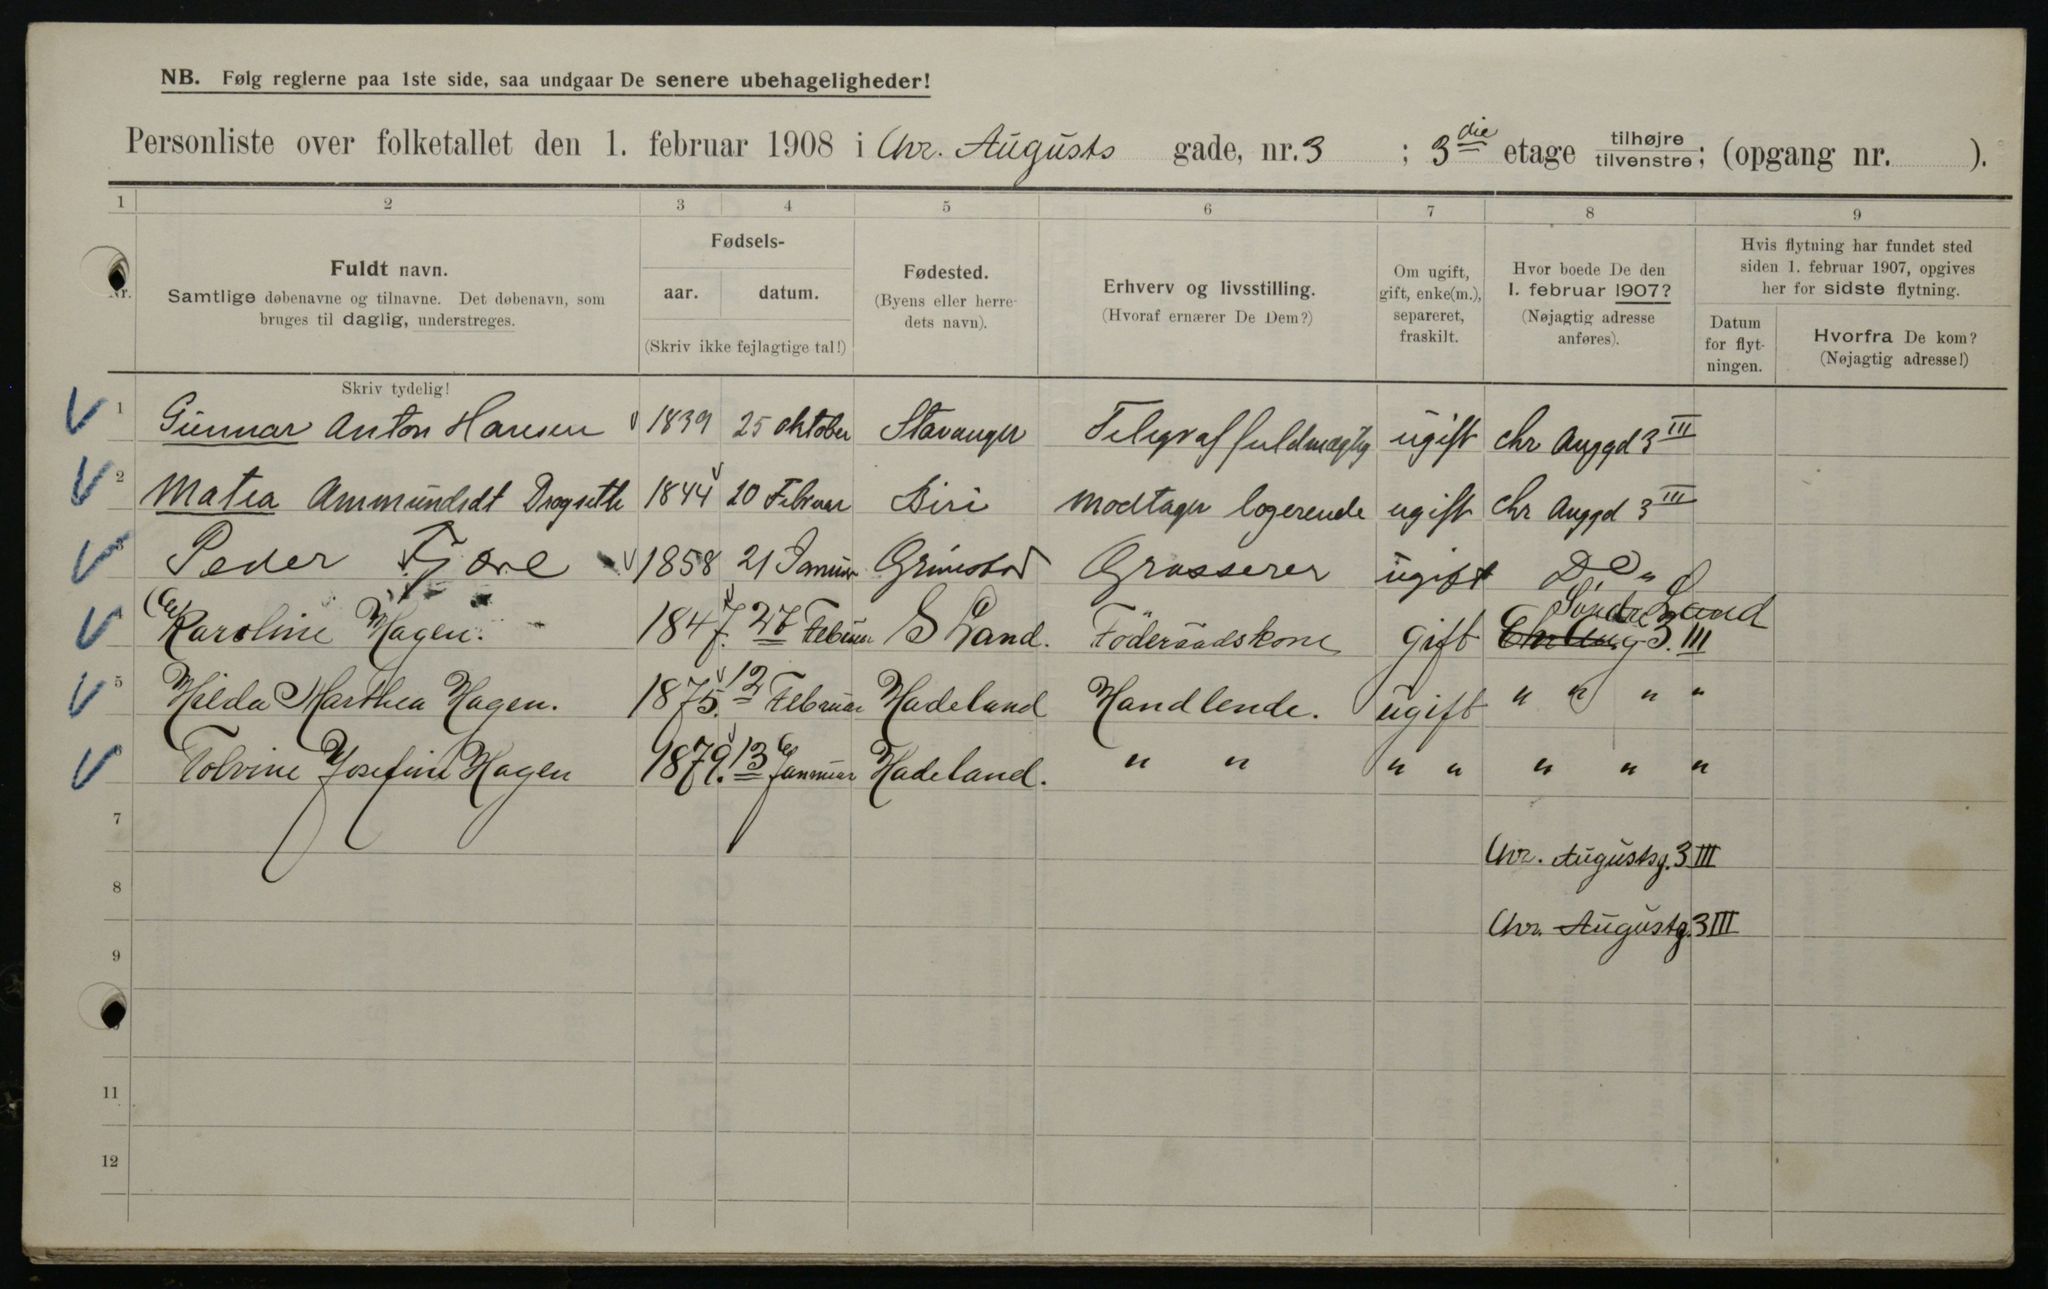 NB. Følg reglerne paa 1ste side, saa undgaar De senere ubehageligheder!
Personliste over folketallet den 1. februar 1908 i Chr. Augusts gade, nr. 3 ; 3die etage tilhøjre tilvenstre; (opgang nr. ).
1 2 3 4 5 6 7 8 9
Nr.
Fuldt navn.
Samtlige døbenavne og tilnavne. Det døbenavn, som
bruges til daglig, understreges.
Skriv tydelig!
Fødsels-
aar. datum.
(Skriv ikke fejlagtige tal!)
Fødested.
(Byens eller herre-
dets navn).
Erhverv og livsstilling.
(Hvoraf ernærer De Dem?)
Om ugift,
gift, enke(m.),
separeret,
fraskilt.
Hvor boede De den
1. februar 1907?
(Nøjagtig adresse
anføres).
Hvis flytning har fundet sted
siden 1. februar 1907, opgives
her for sidste flytning.
Datum
for flyt-
ningen.
Hvorfra De kom?
(Nøjagtig adresse!)
1 Gunnar Anton Hansen 1839 25 oktober Stavanger Telegraffuldmægtig ugift Chr Auggd 3 III
2 Matea Ammundsdt Drogseth 1844 20 Februar Biri Modtager logerende ugift Chr Auggd 3 III
3 Peder Fjære 1858 21 Januar Grimstad Grosserer ugift Do "
Karoline Hagen. 1847. 27 Februar S Land. Föderaadskone gift Söndre Land
Chr Aug 3. III
5 Hilda Marthea Hagen. 1875. 12 Februar Hadeland Handlende. ugift " " " "
6 Tolvine Josefine Hagen 1879. 13 Januar Hadeland. " " " " " " "
7 Chr. Augustsg. 3 III
8 Chr. Augustg. 3 III
9
11
12